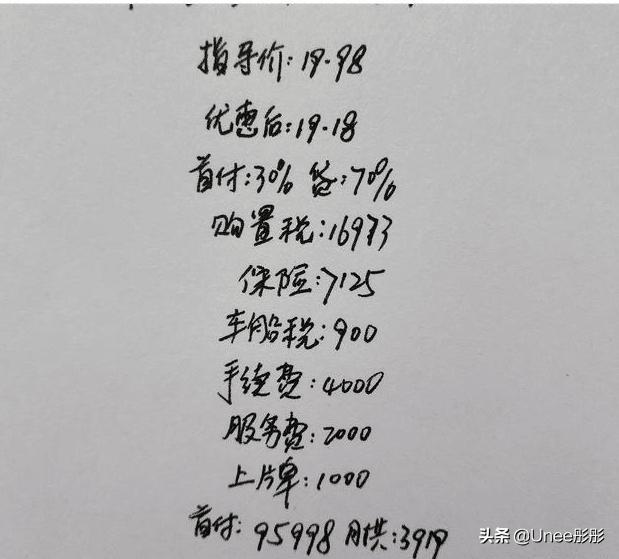 指导价:19.98
优惠后:19.18
首付:30% 贷:70%
购置税:16973
保险:7125
车船税:900
手续费:4000
服务费:2000
上牌:1000
首付:95998 月供:3919
头条 @Unee彤彤